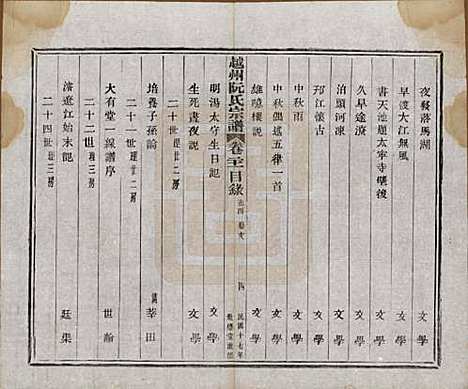 夜發落馬湖 文學
早渡大江無風 文學
書天池題太寧寺壁後 文學
久旱途濟 文學
泊頭河凍 文學
邗江懷古 文學
中秋雨 文學
中秋偶感五律一首 文學
雄曉樓說 文學
越州阮氏宗譜 卷二十二 目錄 四 民國十七年
明湯太守生日記 文學
生死晝夜說 文學
二十世
培養子孫論 莘田
二十一世
大有堂一線譜序 世綸
二十二世
濬遼江始末記 廷渠
二十四世